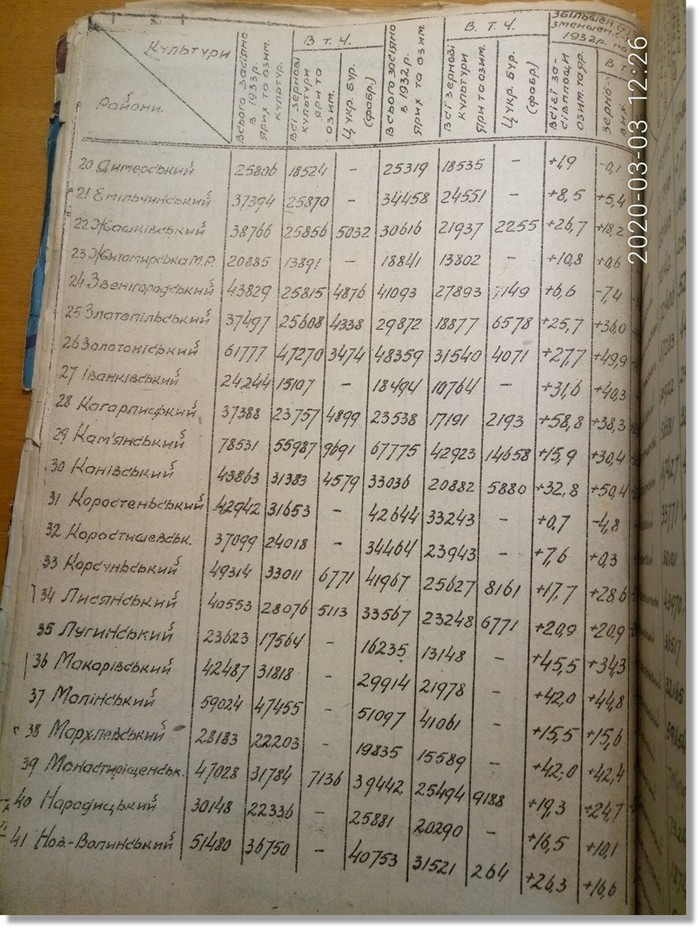 Культури
Райони.
Всього засіяно в 1933 р. ярих та озим. культур.
В т. ч.
Всі зернові культури ярі та озим.
Цукр. бур. (фабр.)
Всього засіяно в 1932 р. ярих та озим.
В т. ч.
Всі зернові культури ярі та озим.
Цукр. бур. (фабр.)
1932р.
Всієї
озим та яр.
20 Димерський 25806 18524 – 25319 18535 – +1,9 -0,1
21 Емільчинський 37394 25870 – 34458 24551 – +8,5 +5,4
22 Жашківський 38766 25856 5032 30616 21937 2255 +26,7 +18,2
23 Житомирська М.Р. 20885 13891 – 18841 13802 – +10,8 +0,6
24 Звенігородський 43829 25815 4876 41093 27893 7149 +6,6 -7,4
25 Златопільський 37497 25608 4338 29872 18877 6578 +25,7 +36,0
26 Золотоніський 61777 47270 3474 48359 31540 4071 +27,7 +49,9
27 Іванківський 24244 15107 – 18494 10764 – +31,6 +40,3
28 Кагарлицький 37388 23757 4899 23538 17191 2193 +58,8 +38,3
29 Кам'янський 78531 55987 9691 67775 42923 14658 +15,9 +30,4
30 Канівський 43863 31383 4579 33036 20882 5880 +32,8 +50,4
31 Коростеньський 42942 31653 – 42644 33243 – +0,7 -4,8
32 Коростишевськ. 37099 24018 – 34464 23943 – +7,6 +0,3
33 Корсуньський 49314 33011 6771 41967 25627 8161 +17,7 +28,6
34 Лисянський 40553 28076 5113 33567 23248 6771 +20,9 +20,9
35 Лугинський 23623 17564 – 16235 13148 – +45,5 +34,3
36 Макарівський 42487 31818 – 29914 21978 – +42,0 +44,8
37 Малінський 59024 47455 – 51097 41061 – +15,5 +15,6
38 Мархлевський 28183 22203 – 19835 15589 – +42,0 +42,4
39 Монастиріщенськ. 47028 31784 7136 39442 25494 9188 +19,3 +24,7
40 Народицький 30148 22336 – 25881 20290 – +16,5 +10,1
41 Нов-Волинський 51480 36750 – 40753 31521 264 +26,3 +16,6
2020-03-03 12:26